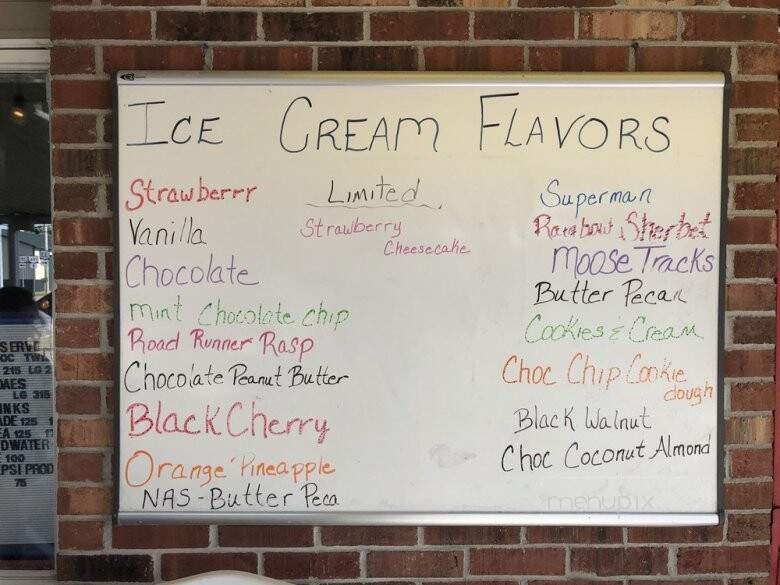 ICE CREAM FLAVORS
Strawberrr
Vanilla
Chocolate
mint Chocolate chip
Road Runner Rasp
Chocolate Peanut Butter
Black Cherry
Orange Pineapple
NAS-Butter Peca
Limited
Strawberry
Cheesecake
Superman
Sherbet
Moose Tracks
Butter Pecan
Cookies & Cream
Choc Chip Cookie
dough
Black Walnut
Choc Coconut Almond
menupix
215 LG 2
LG 315
125
125
DWATER
100
PSI PROD
75